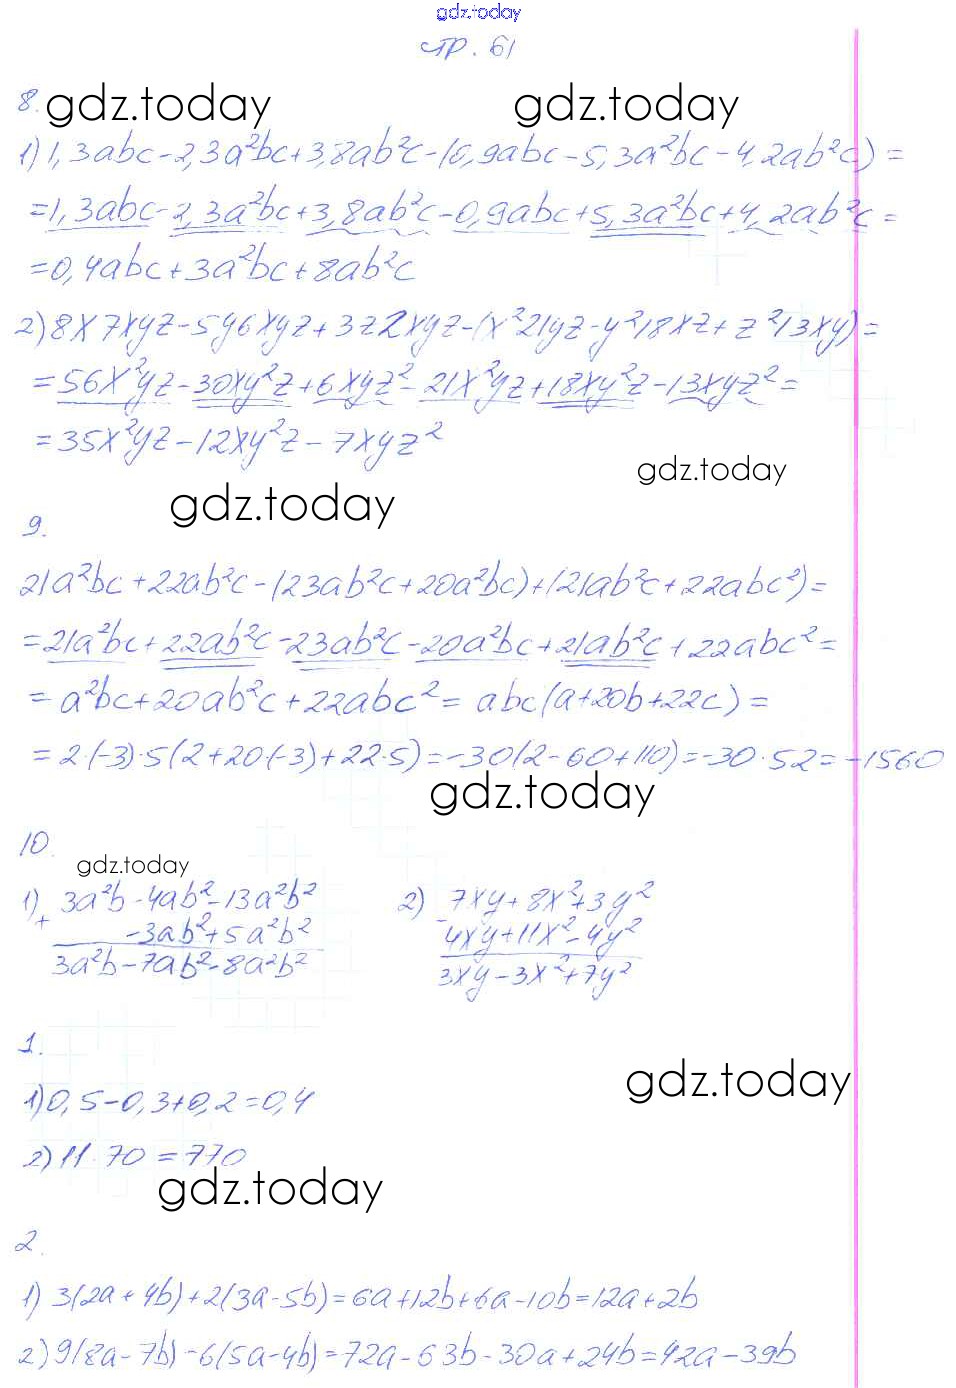 gdz.today
стр. 61
8. gdz.today gdz.today
1) 1,3abc-2,3a²bc+3,8ab²c-(0,9abc-5,3a²bc-4,2ab²c)=
=1,3abc-2,3a²bc+3,8ab²c-0,9abc+5,3a²bc+4,2ab²c=
=0,4abc+3a²bc+8ab²c
2) 8x7xyz-5y6xyz+3z2xyz-(x²21yz-y²18xz+z²13xy)=
=56x²yz-30xy²z+6xyz²-21x²yz+18xy²z-13xyz²=
=35x²yz-12xy²z-7xyz²
gdz.today
gdz.today
9.
21a²bc+22ab²c-(23ab²c+20a²bc)+(21ab²c+22abc²)=
=21a²bc+22ab²c-23ab²c-20a²bc+21ab²c+22abc²=
=a²bc+20ab²c+22abc²=abc(a+20b+22c)=
=2·(-3)·5(2+20·(-3)+22·5)=-30(2-60+110)=-30·52=-1560
gdz.today
10.
gdz.today
1) 3a²b-4ab²-13a²b²
+ -3ab²+5a²b²
3a²b-7ab²-8a²b²
2) 7xy+8x²+3y²
- 4xy+11x²-4y²
3xy-3x²+7y²
1.
gdz.today
1) 0,5-0,3+0,2=0,4
2) 11·70=770
gdz.today
2.
1) 3(2a+4b)+2(3a-5b)=6a+12b+6a-10b=12a+2b
2) 9(8a-7b)-6(5a-4b)=72a-63b-30a+24b=42a-39b